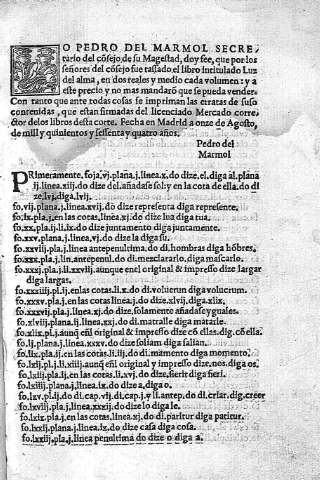 YO PEDRO DEL MARMOL SECRE,
tario del cõsejo de su Magestad, doy fee, que por los
señores del cõsejo fue tassado el libro intitulado Luz
del alma, en dos reales y medio cada volumen: y a
este precio y no mas mandarõ que se pueda vender.
Con tanto que ante todas cosas se impriman las erratas de suso
contenidas, que estan firmadas del licenciado Mercado corre,
ctor de los libros desta corte. Fecha en Madrid a onze de Agosto,
de mill y quinientos y sessenta y quatro años.
Pedro del
Marmol
PRimeramente, foja, vj. plana, j. linea, x. do dize. el. diga al. plana
ij. linea. xiij. do dize del. añadase sol: y en la cota de ella. do di
ze. lvj. diga. lvij.
fo. vij. plana. j. linea. xvij. do dize representa diga represente.
fo. ix. pla. j. en las cotas. linea. xj. do dize lua diga tua.
fo. xx. pla. ij. li. ix. do dize juntamento diga juntamente.
fo. xxv. plana. j. linea. vj. do dize la diga su.
fo. xxvij. pla. j. linea antepenultima. do di. hombras diga hõbres.
fo. xxx. pla. j. lin. antepenul. do di. mezclarlo. diga mascarlo.
fo. xxxj. pla. j. li. xxviij. aũque en el original & impresso dize largar
diga largas.
fo. xxxiiij. pl. ij. en las cotas. li. xx. do di. voluerun diga volucrum.
fo. xxxv. pla. j. en las cotas linea. j. do dize. xlvij. diga. xlix.
fo. xxxvj. pla. j. linea. xxv. do dize, solamente añadase yguales.
fo. xlviij. plana. ij. linea. xxj. do di matralle diga matarle.
fo. xlix. pl. j. aunq̃ eñl original & impresso dize cõ elles. dig. cõ ella.
fo. lj. plana. j. linea. xxv. do dize soliam diga salian.
fo. lix. pla. ij. en las cotas. li. iij. do di. mamento diga momento.
fo. lxij. pl. j. li. xiij. aunq̃ eñl original y impresso dize, nos diga os.
fo. lxiij. pla. ij. en las cotas. li. xv. do dize, fierit diga fieri.
fo. lxiiij. plana. j. linea. ix. do dize a, diga o.
fo. lxv. pl. ij. do di. cap. vij. di cap. j. y li. antep. do di. criar. dig. creer
fo. lxvij. pla. j. linea. xxxj. do dize lo diga le.
fo. lxix. pla. j. en las cotas. linea. xj. do di. paritur diga patitur.
fo. lxx. plana. j. linea. ix. do dize casa diga cosa.
fo. lxxiij. pla. j. linea penultima do dize o diga a.